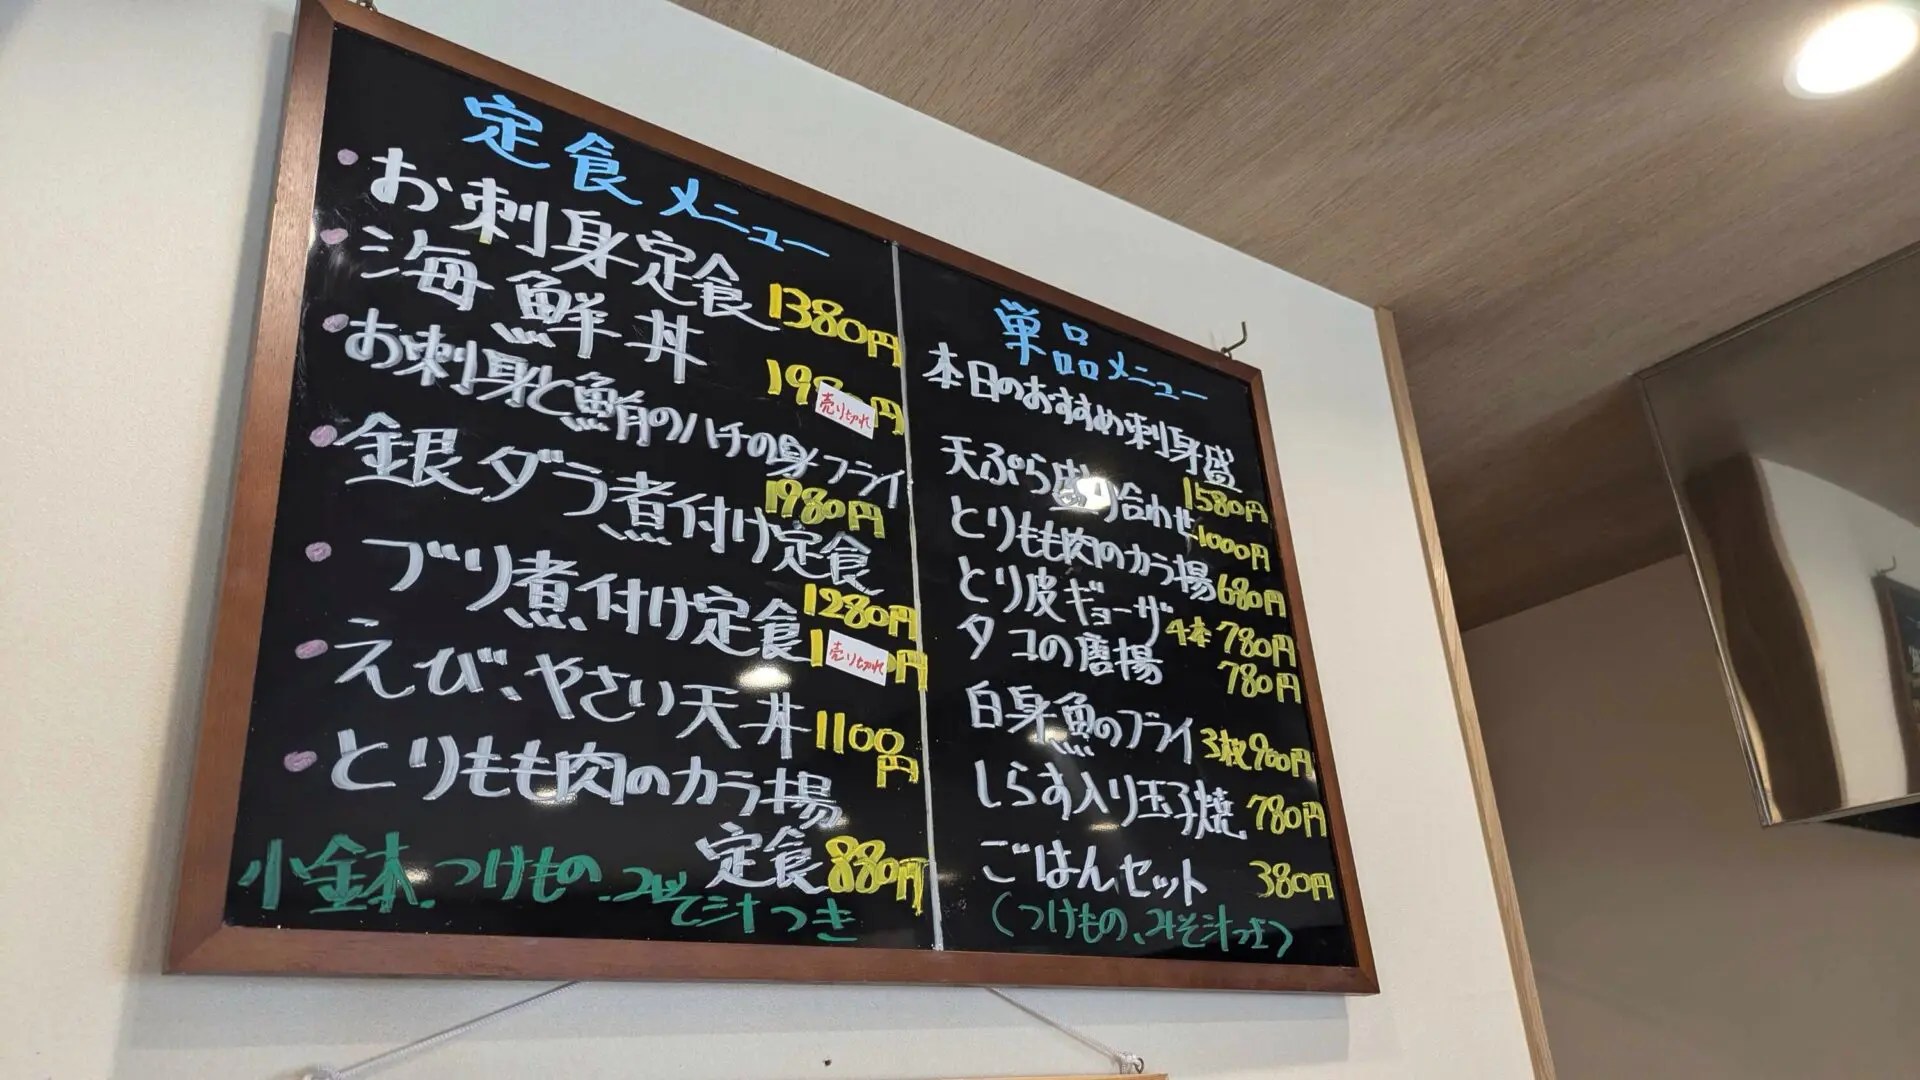 定食メニュー
お刺身定食
1380円
海鮮丼
198 円
売り切れ
お刺身と鮪のハチの身フライ
1980円
銀ダラ煮付け定食
1280円
ブリ煮付け定食
1 円
売り切れ
えび、やさい天丼
1100円
とりもも肉のカラ揚
定食 880円
小鉢、つけもの、みそ汁つき
単品メニュー
本日のおすすめ刺身盛
1580円
天ぷら盛り合わせ 1000円
とりもも肉のカラ揚 680円
とり皮ギョーザ 4本 780円
タコの唐揚 780円
白身魚のフライ 3枚 900円
しらす入り玉子焼 780円
ごはんセット 380円
(つけもの、みそ汁つき)